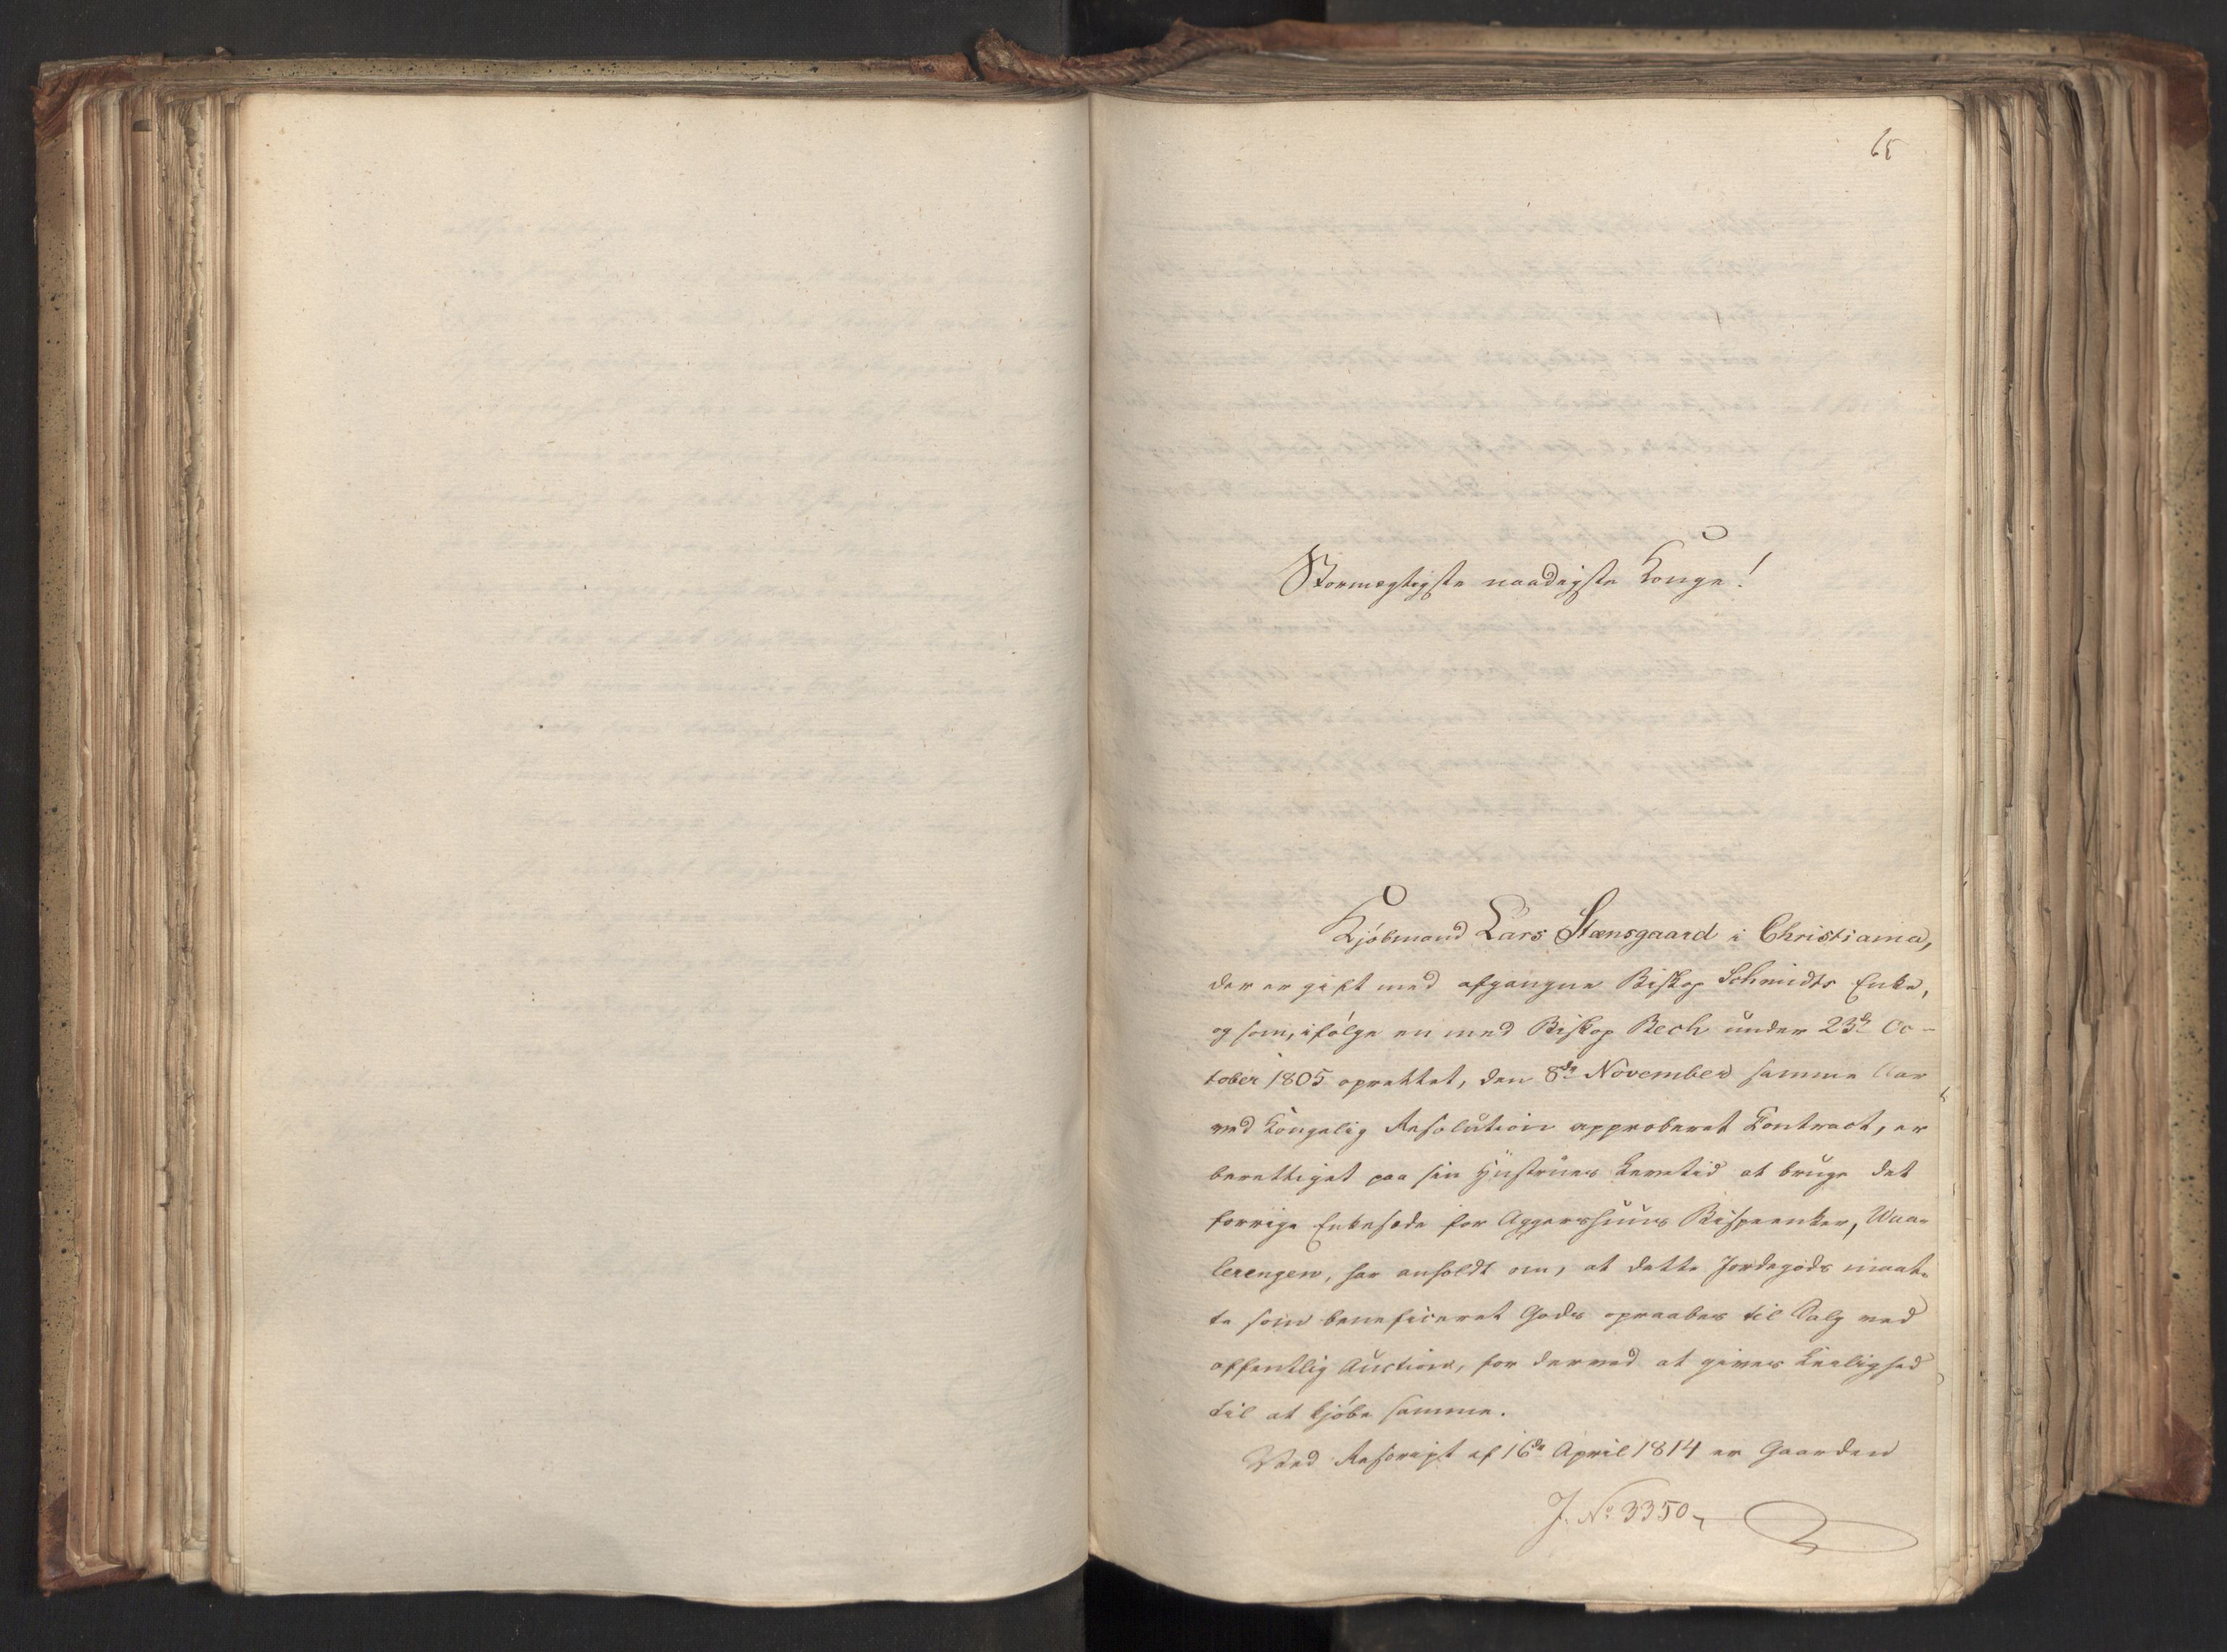 65
Stormægtigste naadigste Konge!
Kjøbmand Lars Stensgaard i Christiania,
der er gift med afgangne Biskop Schmidts Enke,
og som, ifølge en med Biskop Bech under 23de Oc-
tober 1805 oprettet, den 8de November samme Aar
ved Kongelig Resolution approberet Contract, er
berettiget paa sin Hustrues Levetid at bruge det
forrige Enkesæde for Aggershuus Bispeenker, Waa-
lerengen, har anholdt om, at dette Jordegods maat-
te som beneficeret Gods opraabes til Salg ved
offentlig Auction, for derved at gives Leilighed
til at kjøbe samme.
Ved Rescript af 16de April 1814 er Gaarden
J. No 3350